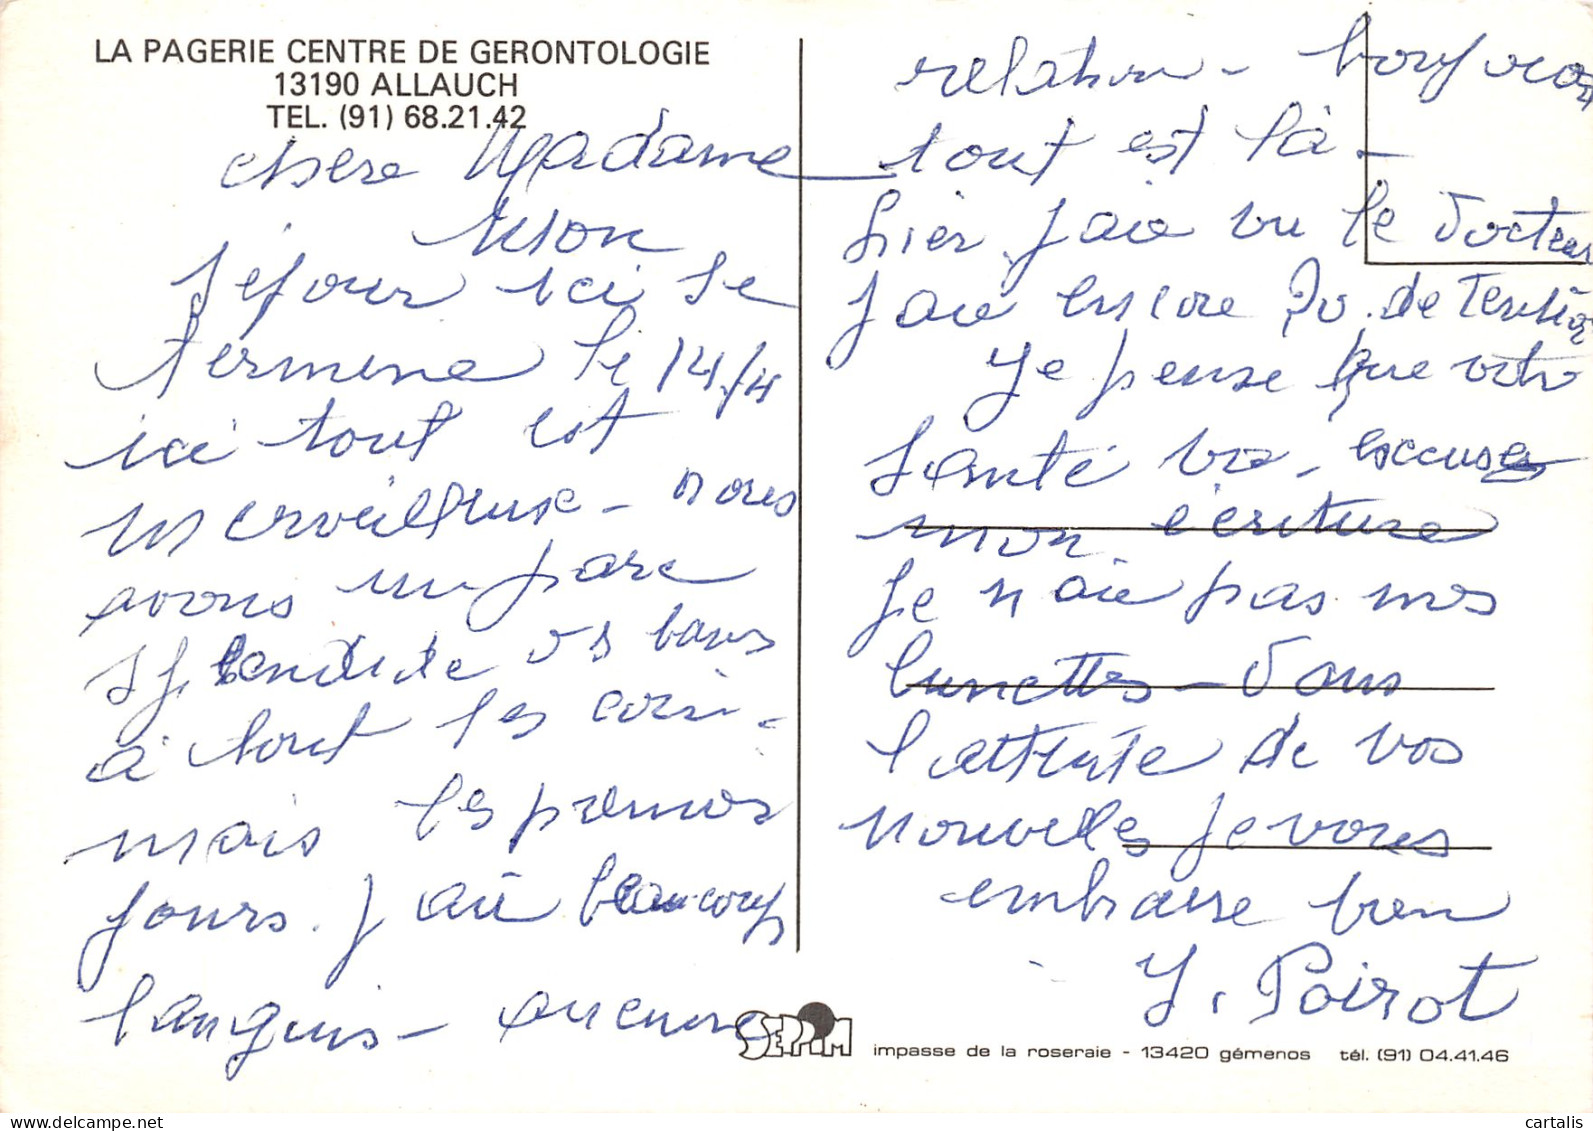 LA PAGERIE CENTRE DE GERONTOLOGIE
13190 ALLAUCH
TEL. (91) 68.21.42
chere Madame
Mon
séjour ici se
termine le 14/4
ici tout est
merveilleuse - nous
avons un parc
splendide os bans
à tout les coin -
mais les premier
jours. J aie beaucoup
languis - aucune
relation -
tout est là -
hier j aie vu le Docteur
J aie encore 20. de Tension
Je pense que votre
Santé va - excuses
mon écriture
Je n aie pas mes
lunettes - Dans
l attente de vos
nouvelles je vous
embrasse bien
Y. Poirot
SEPIM
impasse de la roseraie - 13420 gémenos tél. (91) 04.41.46
cartalis on www.delcampe.net